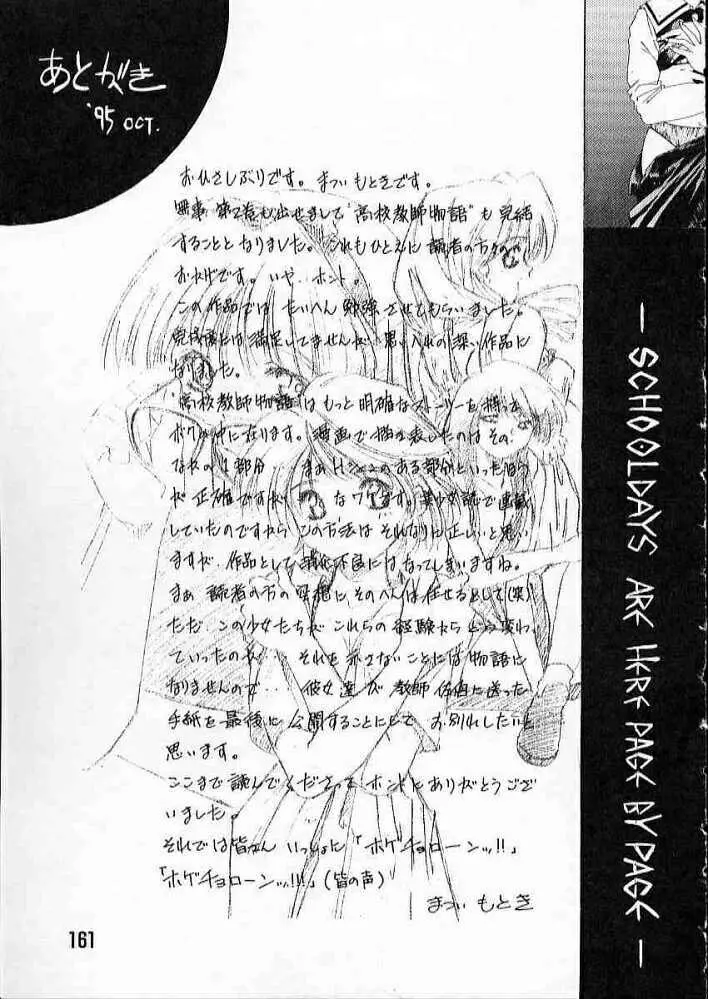 あとがき
'95 OCT.
おひさしぶりです。まついもときです。
無事 第2巻も出せまして"高校教師物語"も完結
することとなりました。これもひとえに読者の方々の
おかげです。いや…ホント。
この作品では たいへん勉強させてもらいました。
には満足してませんが 思い入れの深い作品に
なりました。
"高校教師物語"はもっと明確なストーリーを持って
ボクの中に在ります。漫画で描き表したのはその
なかの1部分… まぁHシーンのある部分といった方
が 正確ですが なワケです。美少女誌で連載
していたのですから この方法は それなりに正しいと思い
ますが、作品として消化不良にはなってしまいますね。
まぁ 読者の方の に、そのへんは任せるとして(笑)
ただ、この少女たちが これらの経験から どう変わ
っていったのか… それを示さないことには物語に
なりませんので… 彼女達が 教師 に送った
手紙を最後に公開することにして お別れしたいと
思います。
ここまで読んでくださって ホントにありがとうござ
いました。
それでは皆さん いっしょに「ホゲチョローンッ!!」
「ホゲチョローンッ!!!」(皆の声)
まつい もとき
161
— SCHOOLDAYS ARE HERE PAGE BY PAGE —